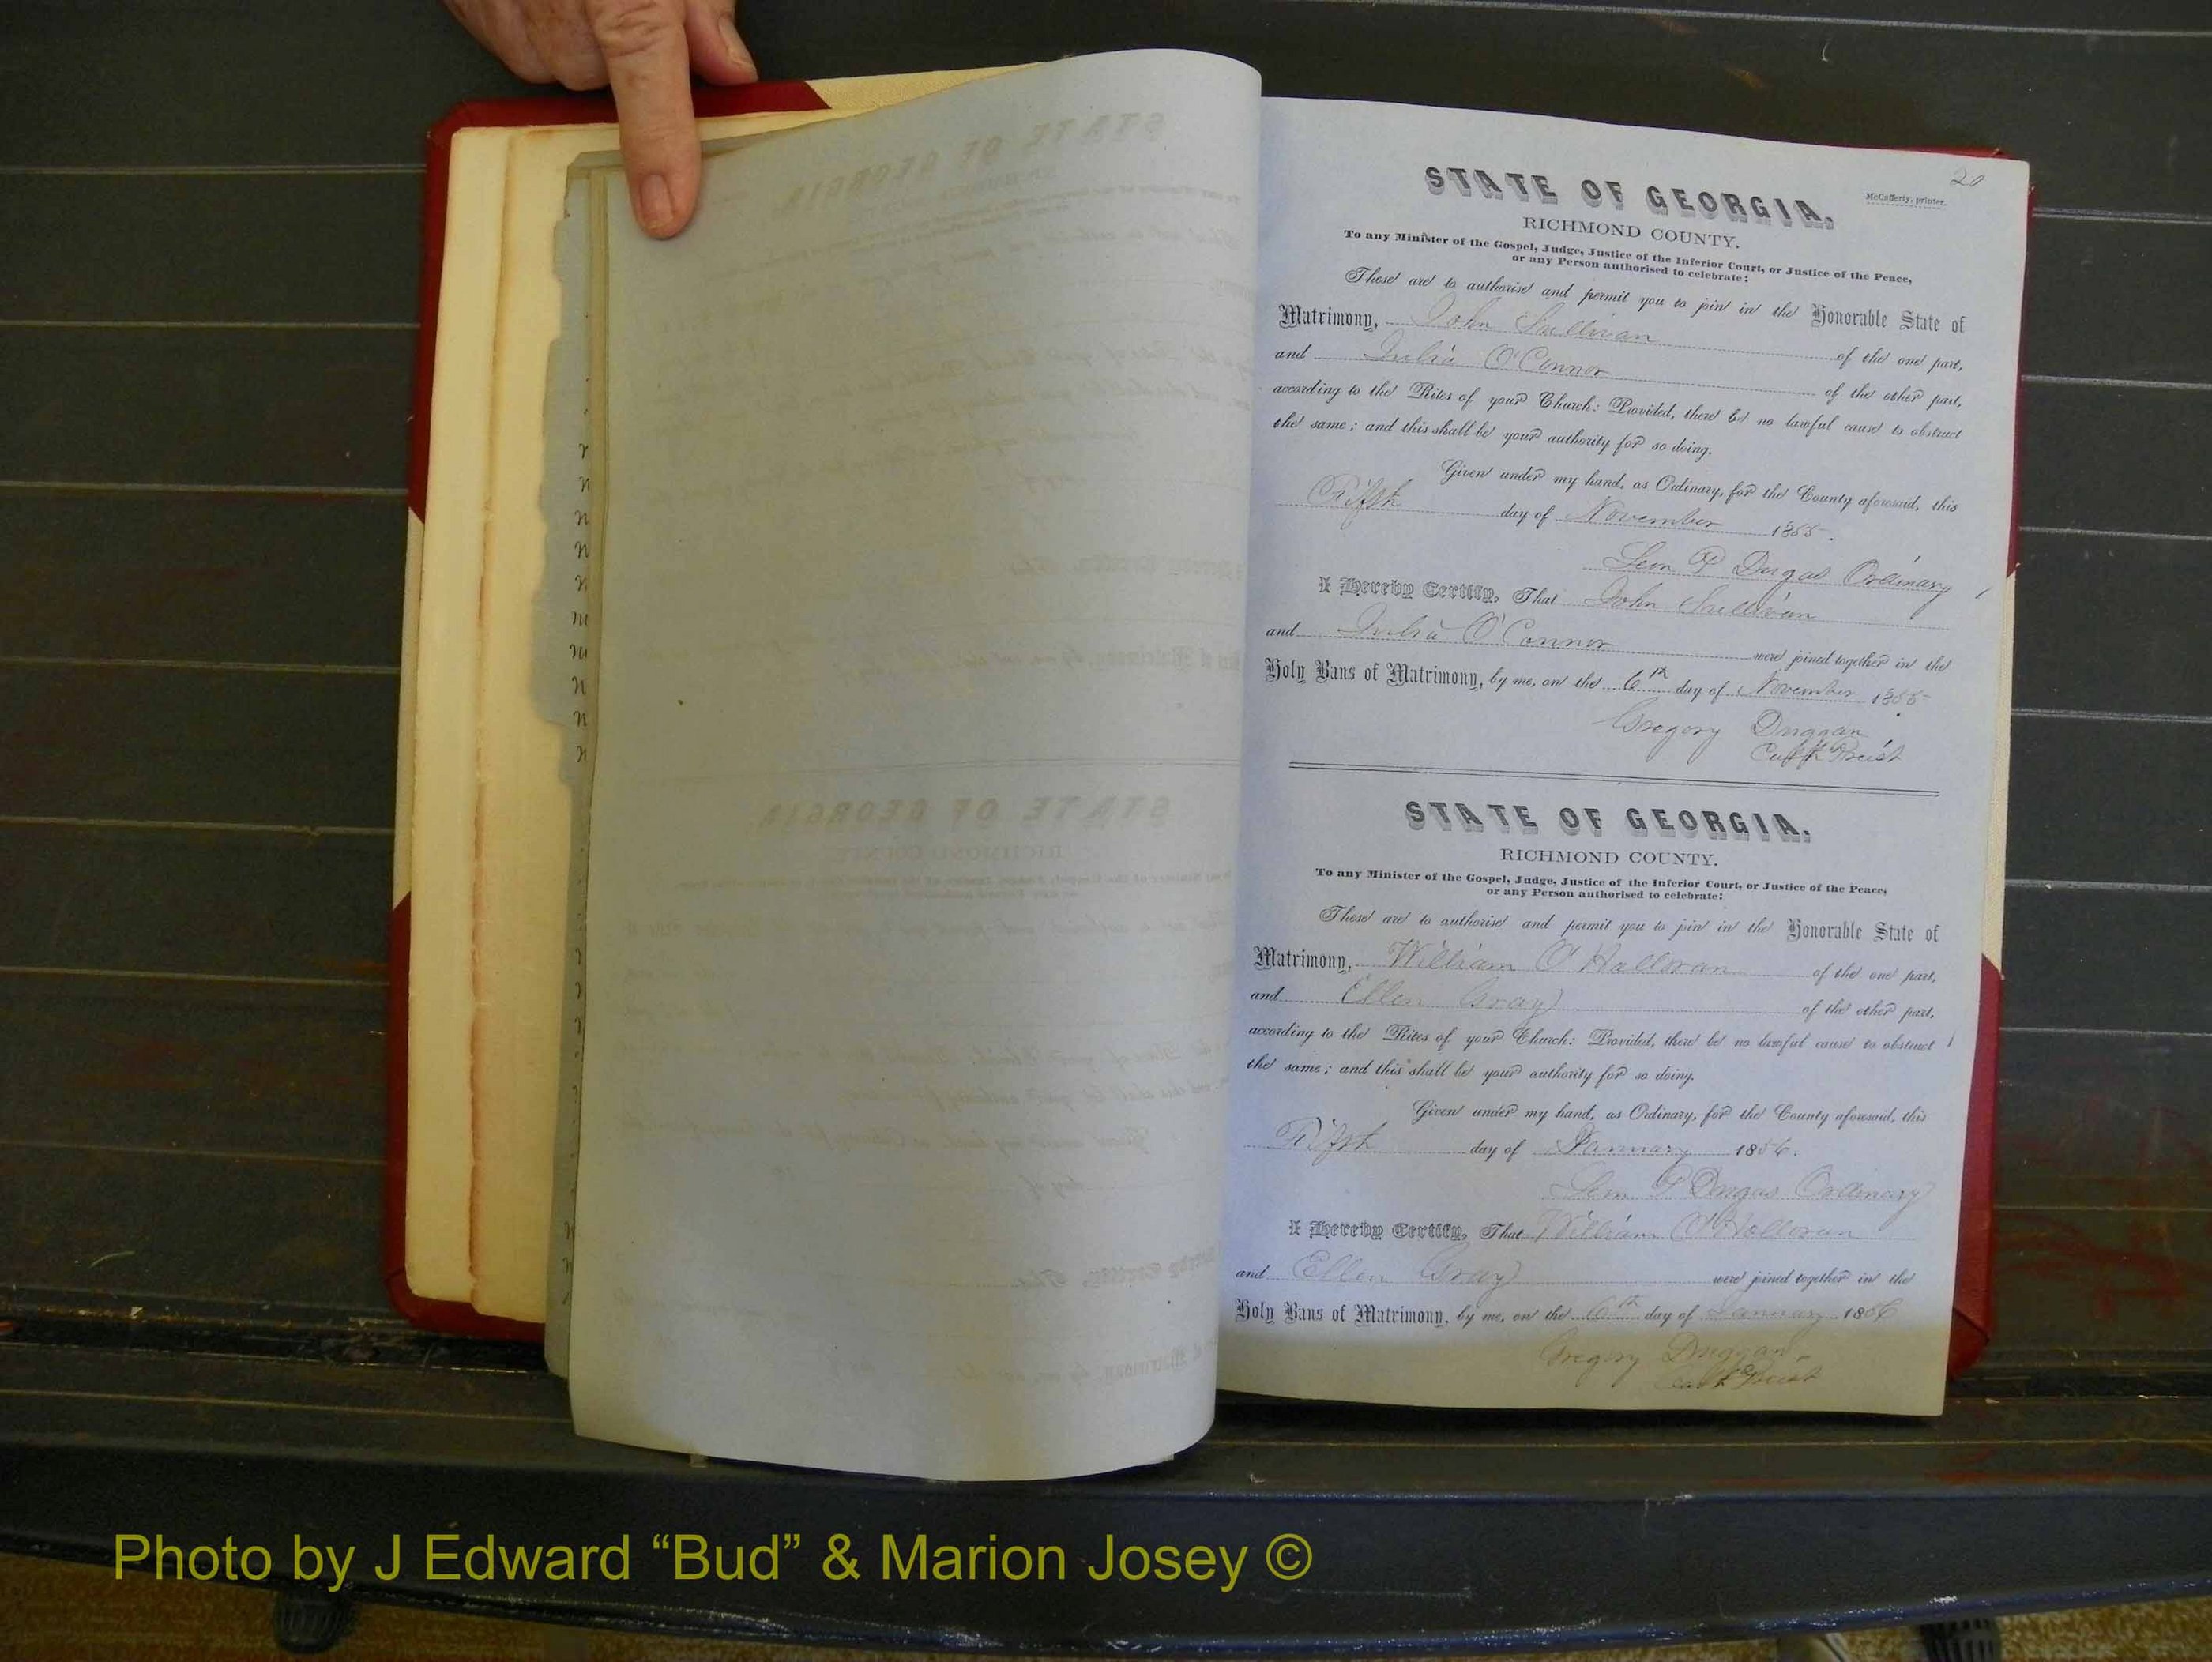 20
McCafferty, printer.
STATE OF GEORGIA,
RICHMOND COUNTY.
To any Minister of the Gospel, Judge, Justice of the Inferior Court, or Justice of the Peace,
or any Person authorised to celebrate:
These are to authorise and permit you to join in the Honorable State of
Matrimony, John Sullivan of the one part,
and Julia O'Connor of the other part,
according to the Rites of your Church: Provided, there be no lawful cause to obstruct
the same; and this shall be your authority for so doing.
Given under my hand, as Ordinary, for the County aforesaid, this
Fifth day of November 1855.
Leon P Dugas Ordinary
I Hereby Certify, That John Sullivan
and Julia O'Connor were joined together in the
Holy Bans of Matrimony, by me, on the 6th day of November 1855
Gregory Duggan
Cath Priest
STATE OF GEORGIA,
RICHMOND COUNTY.
To any Minister of the Gospel, Judge, Justice of the Inferior Court, or Justice of the Peace,
or any Person authorised to celebrate:
These are to authorise and permit you to join in the Honorable State of
Matrimony, William O'Halloran of the one part,
and Ellen Gray of the other part,
according to the Rites of your Church: Provided, there be no lawful cause to obstruct
the same; and this shall be your authority for so doing.
Given under my hand, as Ordinary, for the County aforesaid, this
Fifth day of January 1856.
Leon P Dugas Ordinary
I Hereby Certify, That William O'Halloran
and Ellen Gray were joined together in the
Holy Bans of Matrimony, by me, on the 6th day of January 1856
Gregory Duggan
Cath Priest
Photo by J Edward “Bud” & Marion Josey ©